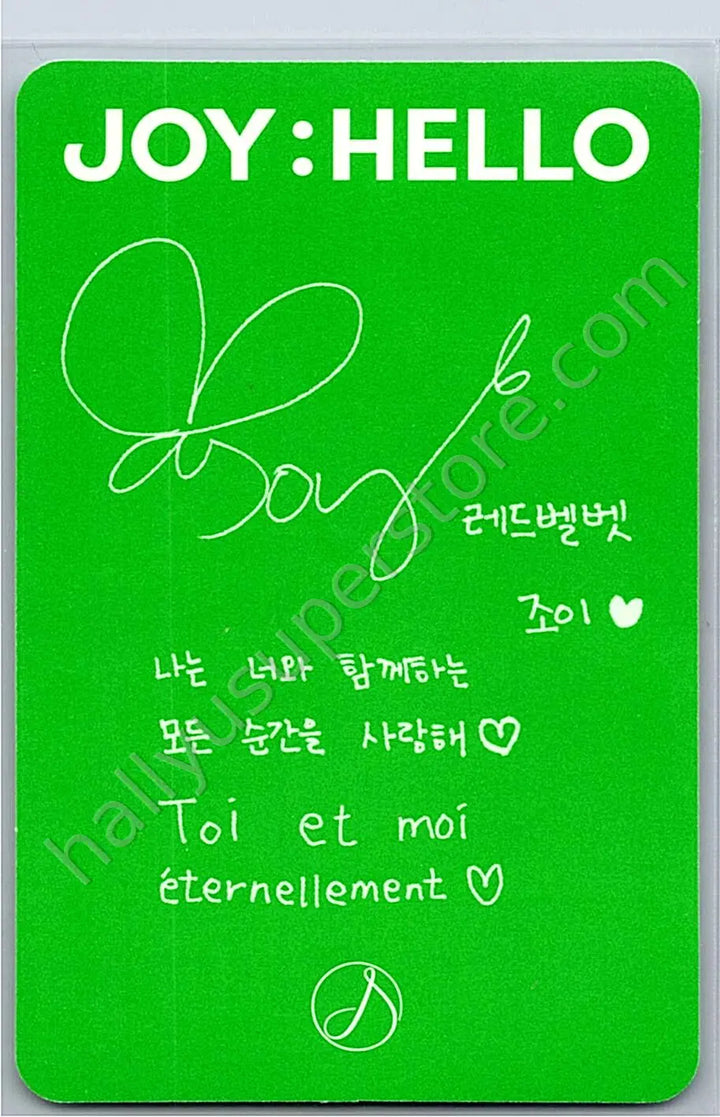 JOY:HELLO
Joy
레드벨벳
조이♥
나는 너와 함께하는
모든 순간을 사랑해♡
Toi et moi
éternellement♡
hallyusuperstore.com